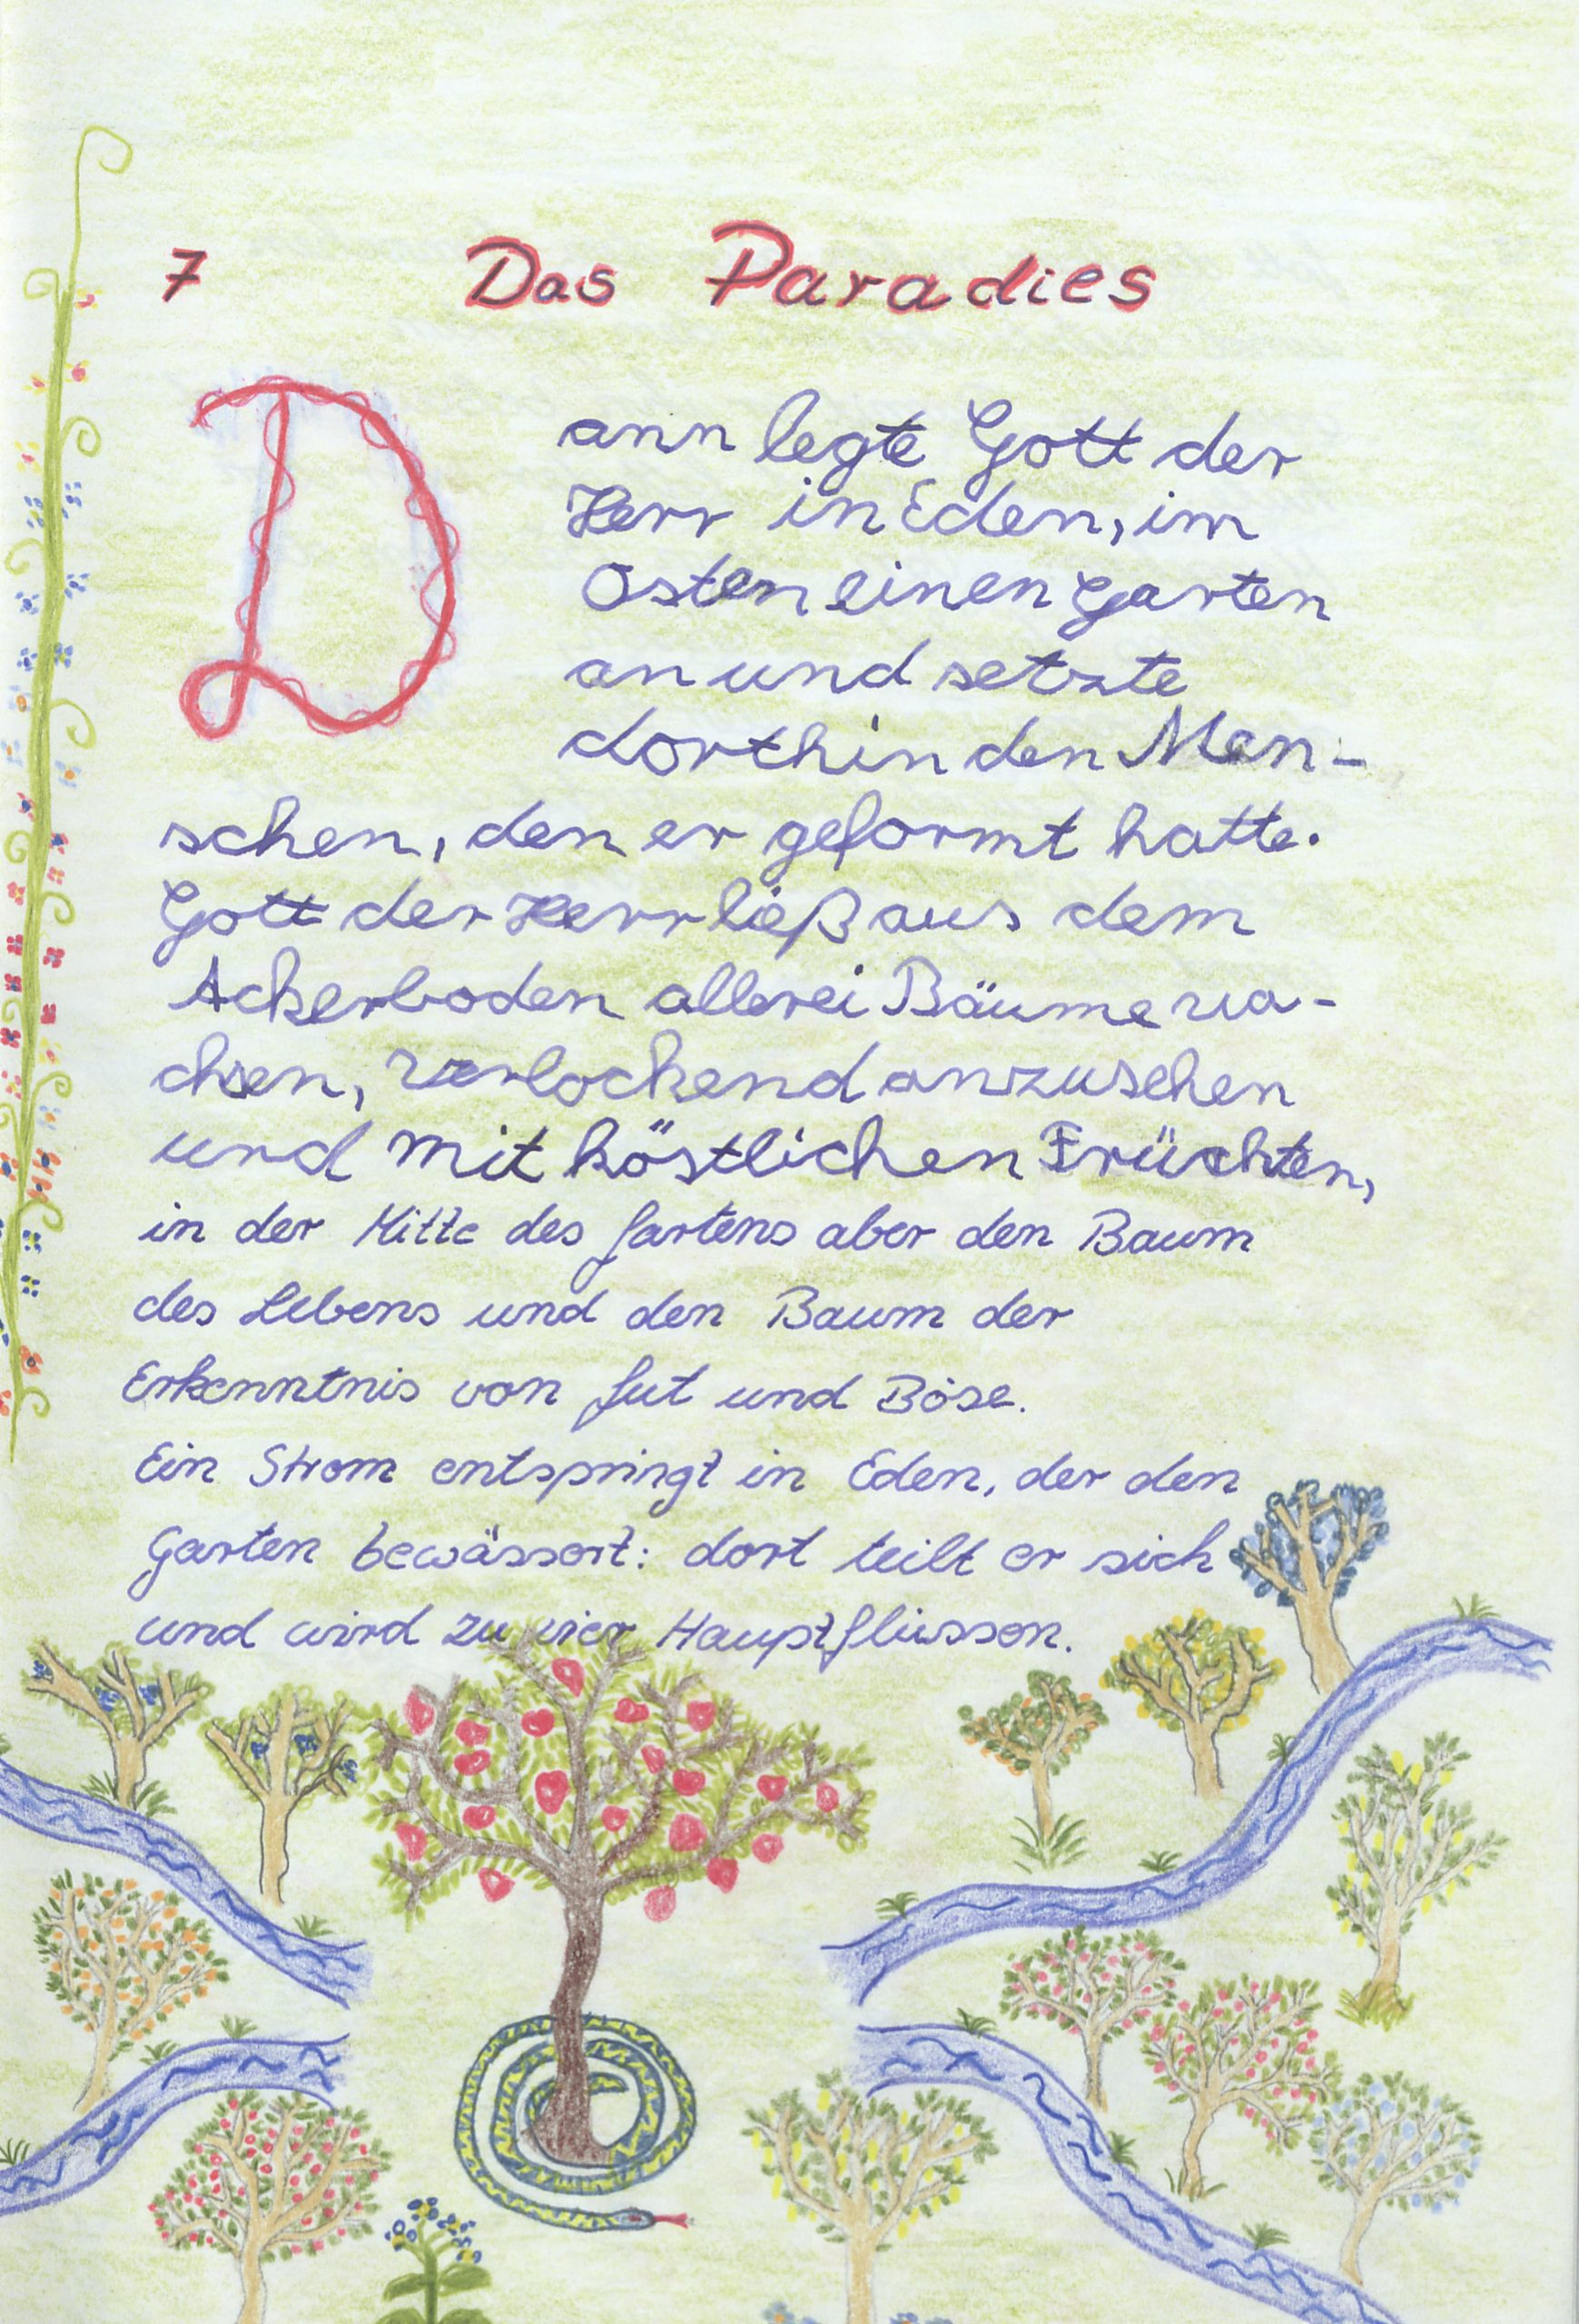 7 Das Paradies
Dann legte Gott der
Herr in Eden, im
Osten einen Garten
an und setzte
dorthin den Men-
schen, den er geformt hatte.
Gott der Herr ließ aus dem
Ackerboden allerei Bäume wa-
chsen, verlockend anzusehen
und mit köstlichen Früchten,
in der Mitte des Gartens aber den Baum
des Lebens und den Baum der
Erkenntnis von Gut und Böse.
Ein Strom entspringt in Eden, der den
Garten bewässert: dort teilt er sich
und wird zu vier Hauptflüssen.